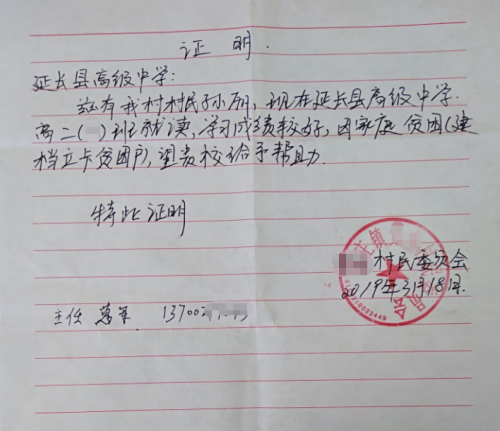 证 明.
延长县高级中学:
兹有我村村民孙丽, 现在延长县高级中学.
高二( )班就读, 学习成绩较好, 因家庭贫困(建
档立卡贫困户), 望贵校给予帮助.
特此证明
镇
村民委员会
2019年3月18日.
主任 13700